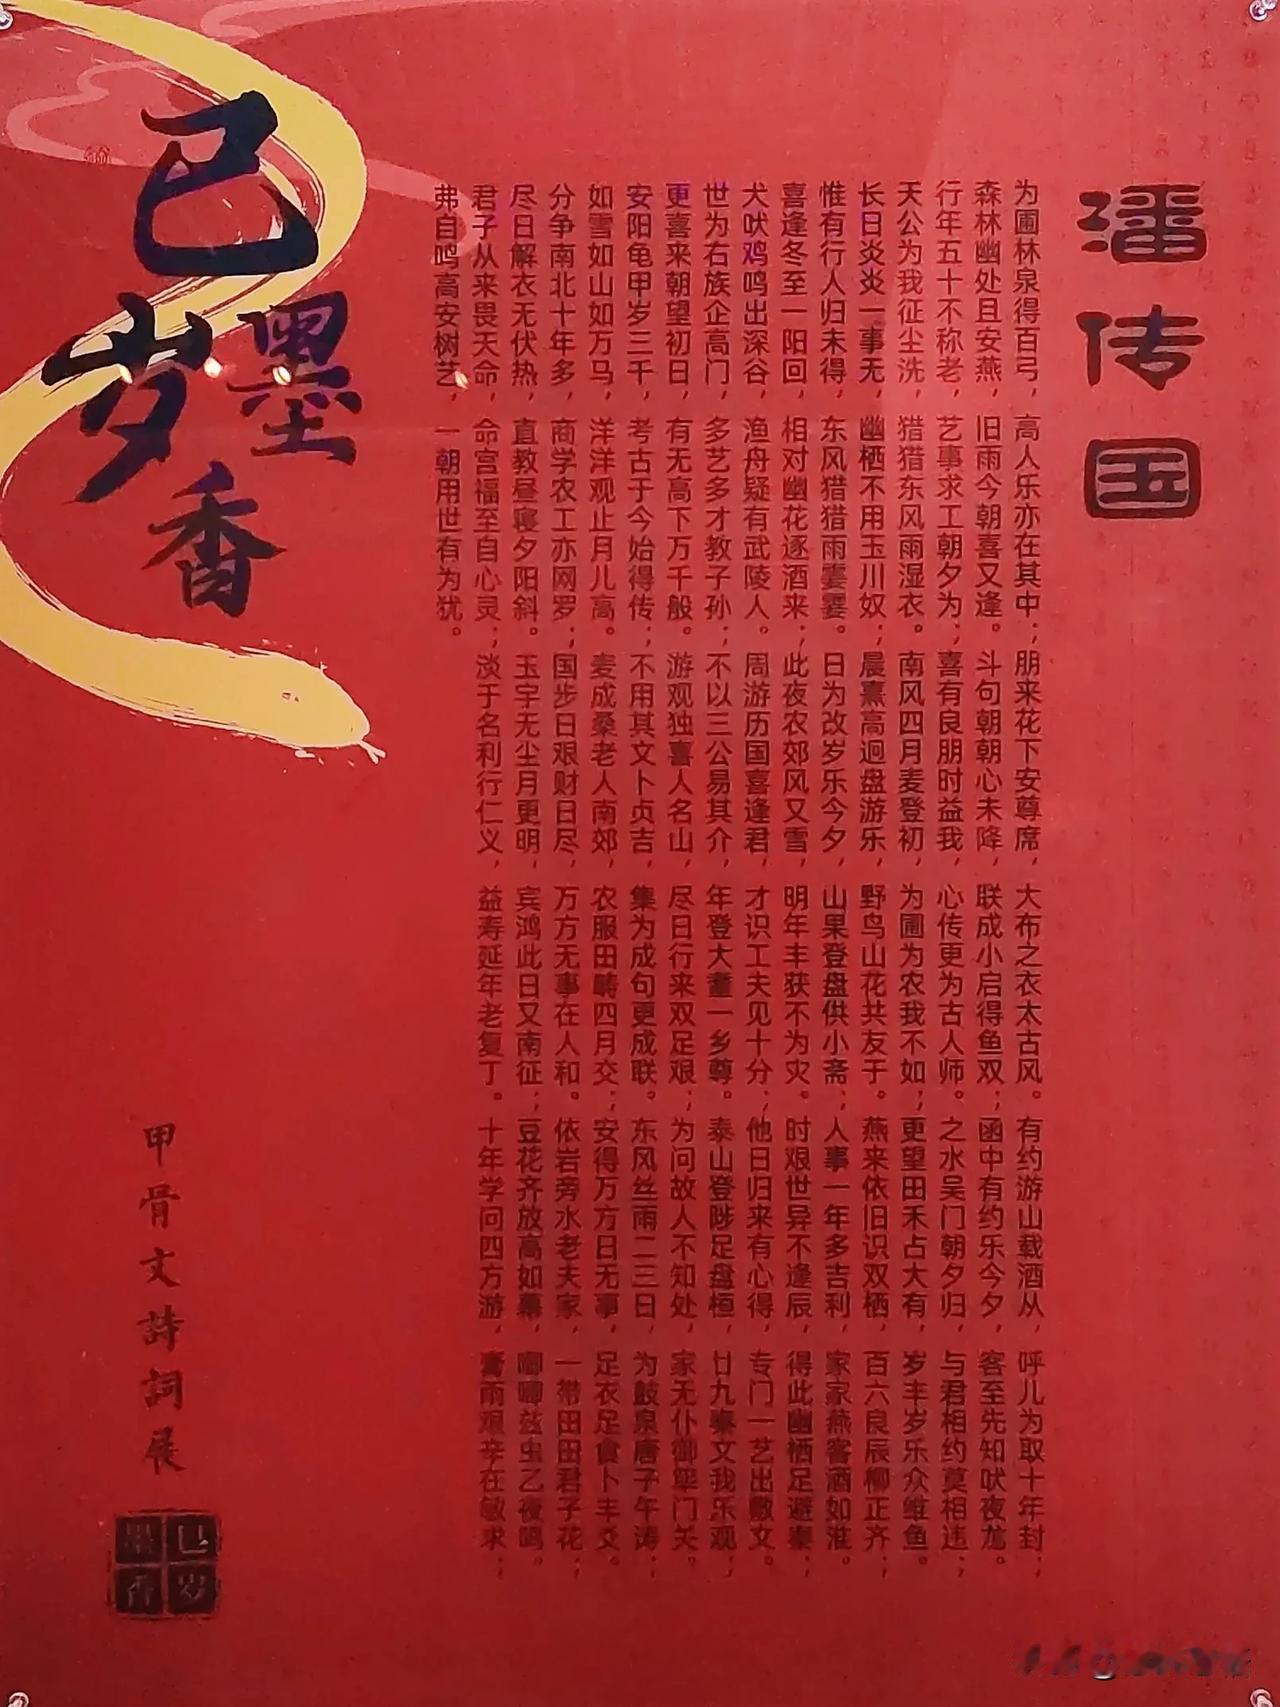 潘传国
为圃林泉得百弓，高人乐亦在其中；朋来花下安尊席，大布之衣太古风。有约游山载酒从，呼儿为取十年封；
森林幽处且安燕，旧雨今朝喜又逢。斗句朝朝心未降，联成小启得鱼双；函中有约乐今夕，客至先知吠夜尨。
行年五十不称老，艺事求工朝夕为；喜有良朋时益我，心传更为古人师。之水吴门朝夕归，与君相约莫相违；
天公为我征尘洗，猎猎东风雨湿衣。南风四月麦登初，为圃为农我不如；更望田禾占大有，岁丰岁乐众维鱼。
长日炎炎一事无，幽栖不用玉川奴；晨熹高迥盘游乐，野鸟山花共友于。燕来依旧识双栖，百六良辰柳正齐；
惟有行人归未得，东风猎猎雨霋霋。日为改岁乐今夕，山果登盘供小斋；人事一年多吉利，家家燕客酒如淮。
喜逢冬至一阳回，相对幽花逐酒来；此夜农郊风又雪，明年丰获不为灾。时艰世异不逢辰，得此幽栖足避秦；
犬吠鸡鸣出深谷，渔舟疑有武陵人。周游历国喜逢君，才识工夫见十分；他日归来有心得，专门一艺出敷文。
世为右族企高门，多艺多才教子孙；不以三公易其介，年登大耋一乡尊。泰山登陟足盘桓，廿九秦文我乐观；
更喜来朝望初日，有无高下万千般。游观独喜人名山，尽日行来双足艰；为问故人不知处，家无仆御荜门关。
安阳龟甲岁三千，考古于今始得传；不用其文卜贞吉，集为成句更成联。东风丝雨二三日，为鼓泉唐子午涛；
如雪如山如万马，洋洋观止月儿高。麦成桑老人南郊，农服田畴四月交；安得万方日无事，足衣足食卜丰爻。
分争南北十年多，商学农工亦网罗；国步日艰财日尽，万方无事在人和。依岩旁水老夫家，一带田田君子花；
尽日解衣无伏热，直教昼寝夕阳斜。玉宇无尘月更明，宾鸿此日又南征；豆花齐放高如幕，唧唧兹虫乙夜鸣。
君子从来畏天命，命宫福至自心灵；淡于名利行仁义，益寿延年老复丁。十年学问四方游，膏雨艰辛在敏求；
弗自鸣高安树艺，一朝用世有为犹。
巳岁墨香
甲骨文詩詞展
巳岁墨香